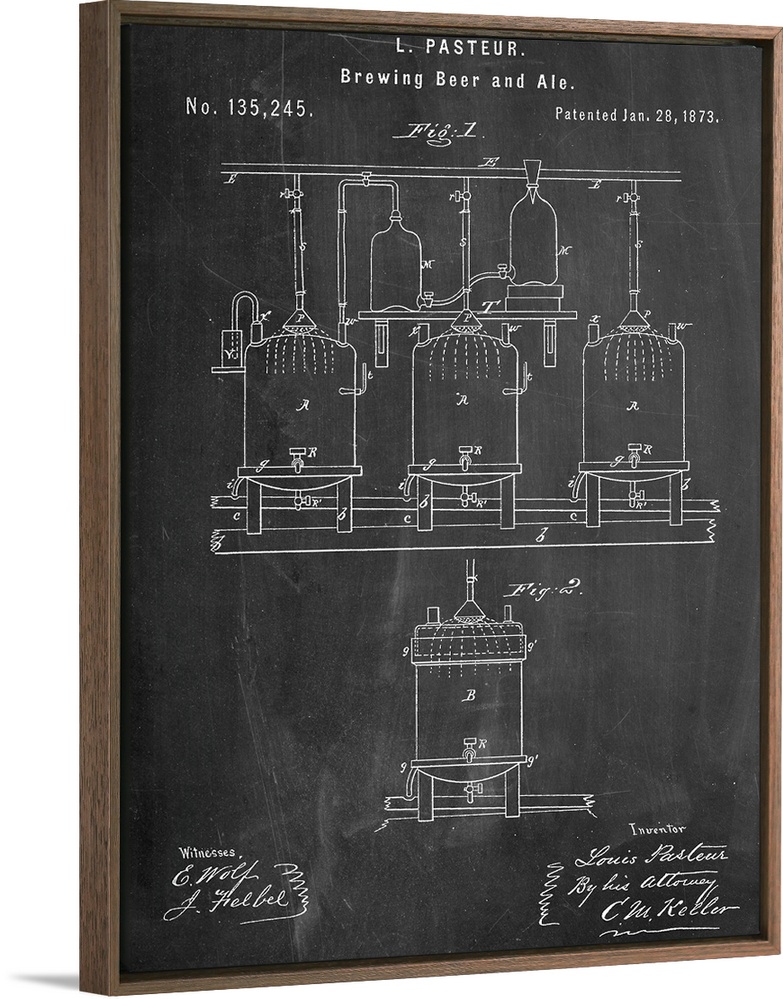 L. PASTEUR.
Brewing Beer and Ale.
No. 135,245.
Patented Jan. 28, 1873.
Fig: 1.
E
E
E
r
r
r
s
s
s
M
M
T
x
P
w
x
P
w
x
P
w
V
t
t
A
A
A
R
R
R
g
g
g
i
i
i
R'
R'
R'
c
b
c
b
c
b
b
b
Fig: 2.
g
g'
B
R
g
g'
Witnesses.
E. Wolf
J. Felbel
Inventor
Louis Pasteur
By his Attorney
C. M. Keller